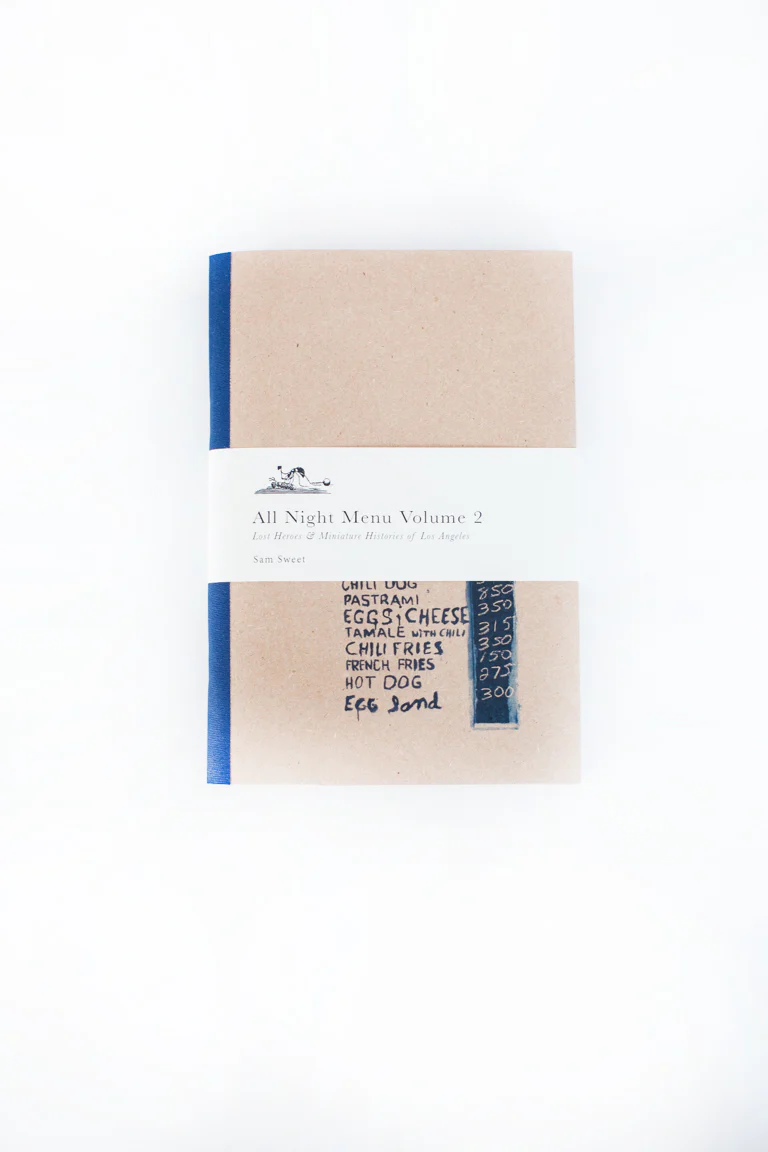 All Night Menu Volume 2
Lost Heroes & Miniature Histories of Los Angeles
Sam Sweet
CHILI DOG
PASTRAMI 850
EGGS, CHEESE 350
TAMALE WITH CHILI 315
CHILI FRIES 350
FRENCH FRIES 150
HOT DOG 275
EGG Sand 300